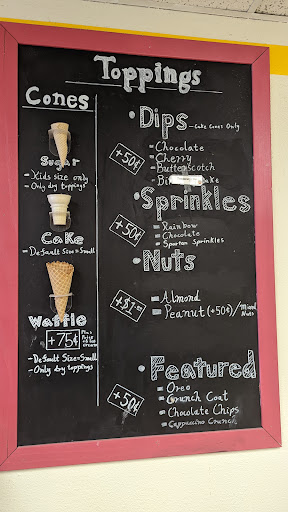 Toppings
Cones
Sugar
- Kids size only
- Only dry toppings
Cake
- Default Size = Small
Waffle
+75¢
Plus
Price
of
ice
cream
- Default Size = Small
- Only dry toppings
• Dips - Cake Cones Only
+50¢
= Chocolate
= Cherry
= Butterscotch
• Sprinkles
+50¢
= Rainbow
= Chocolate
= Spartan Sprinkles
• Nuts
= Almond
= Peanut (+50¢)/Mixed Nuts
• Featured
+50¢
= Oreo
= Crunch Coat
= Chocolate Chips
= Cappuccino Crunch